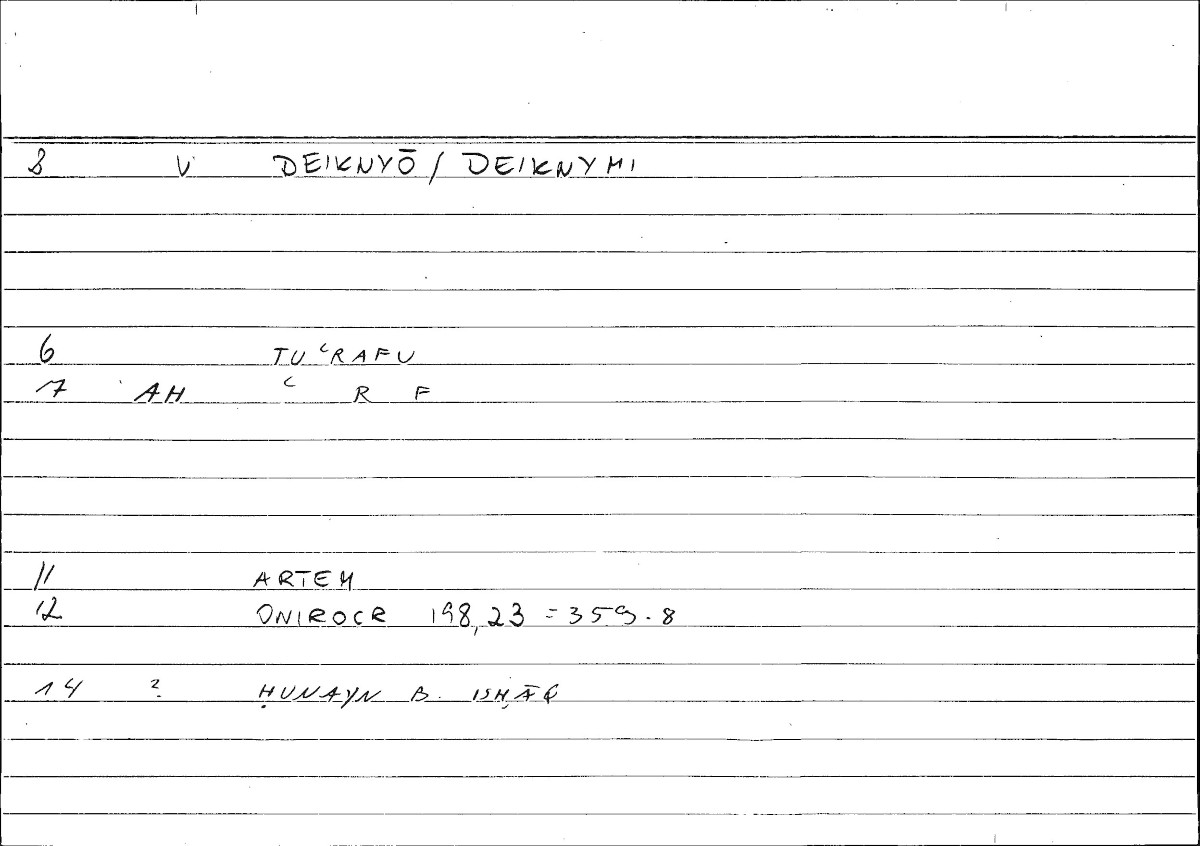 3 V DEIKNYŌ / DEIKNYMI
6 TUʿRAFU
7 AH ʿ R F
11 ARTEM
12 ONIROCR 198,23 = 359.8
14 ? ḤUNAYN B. ISḤĀQ